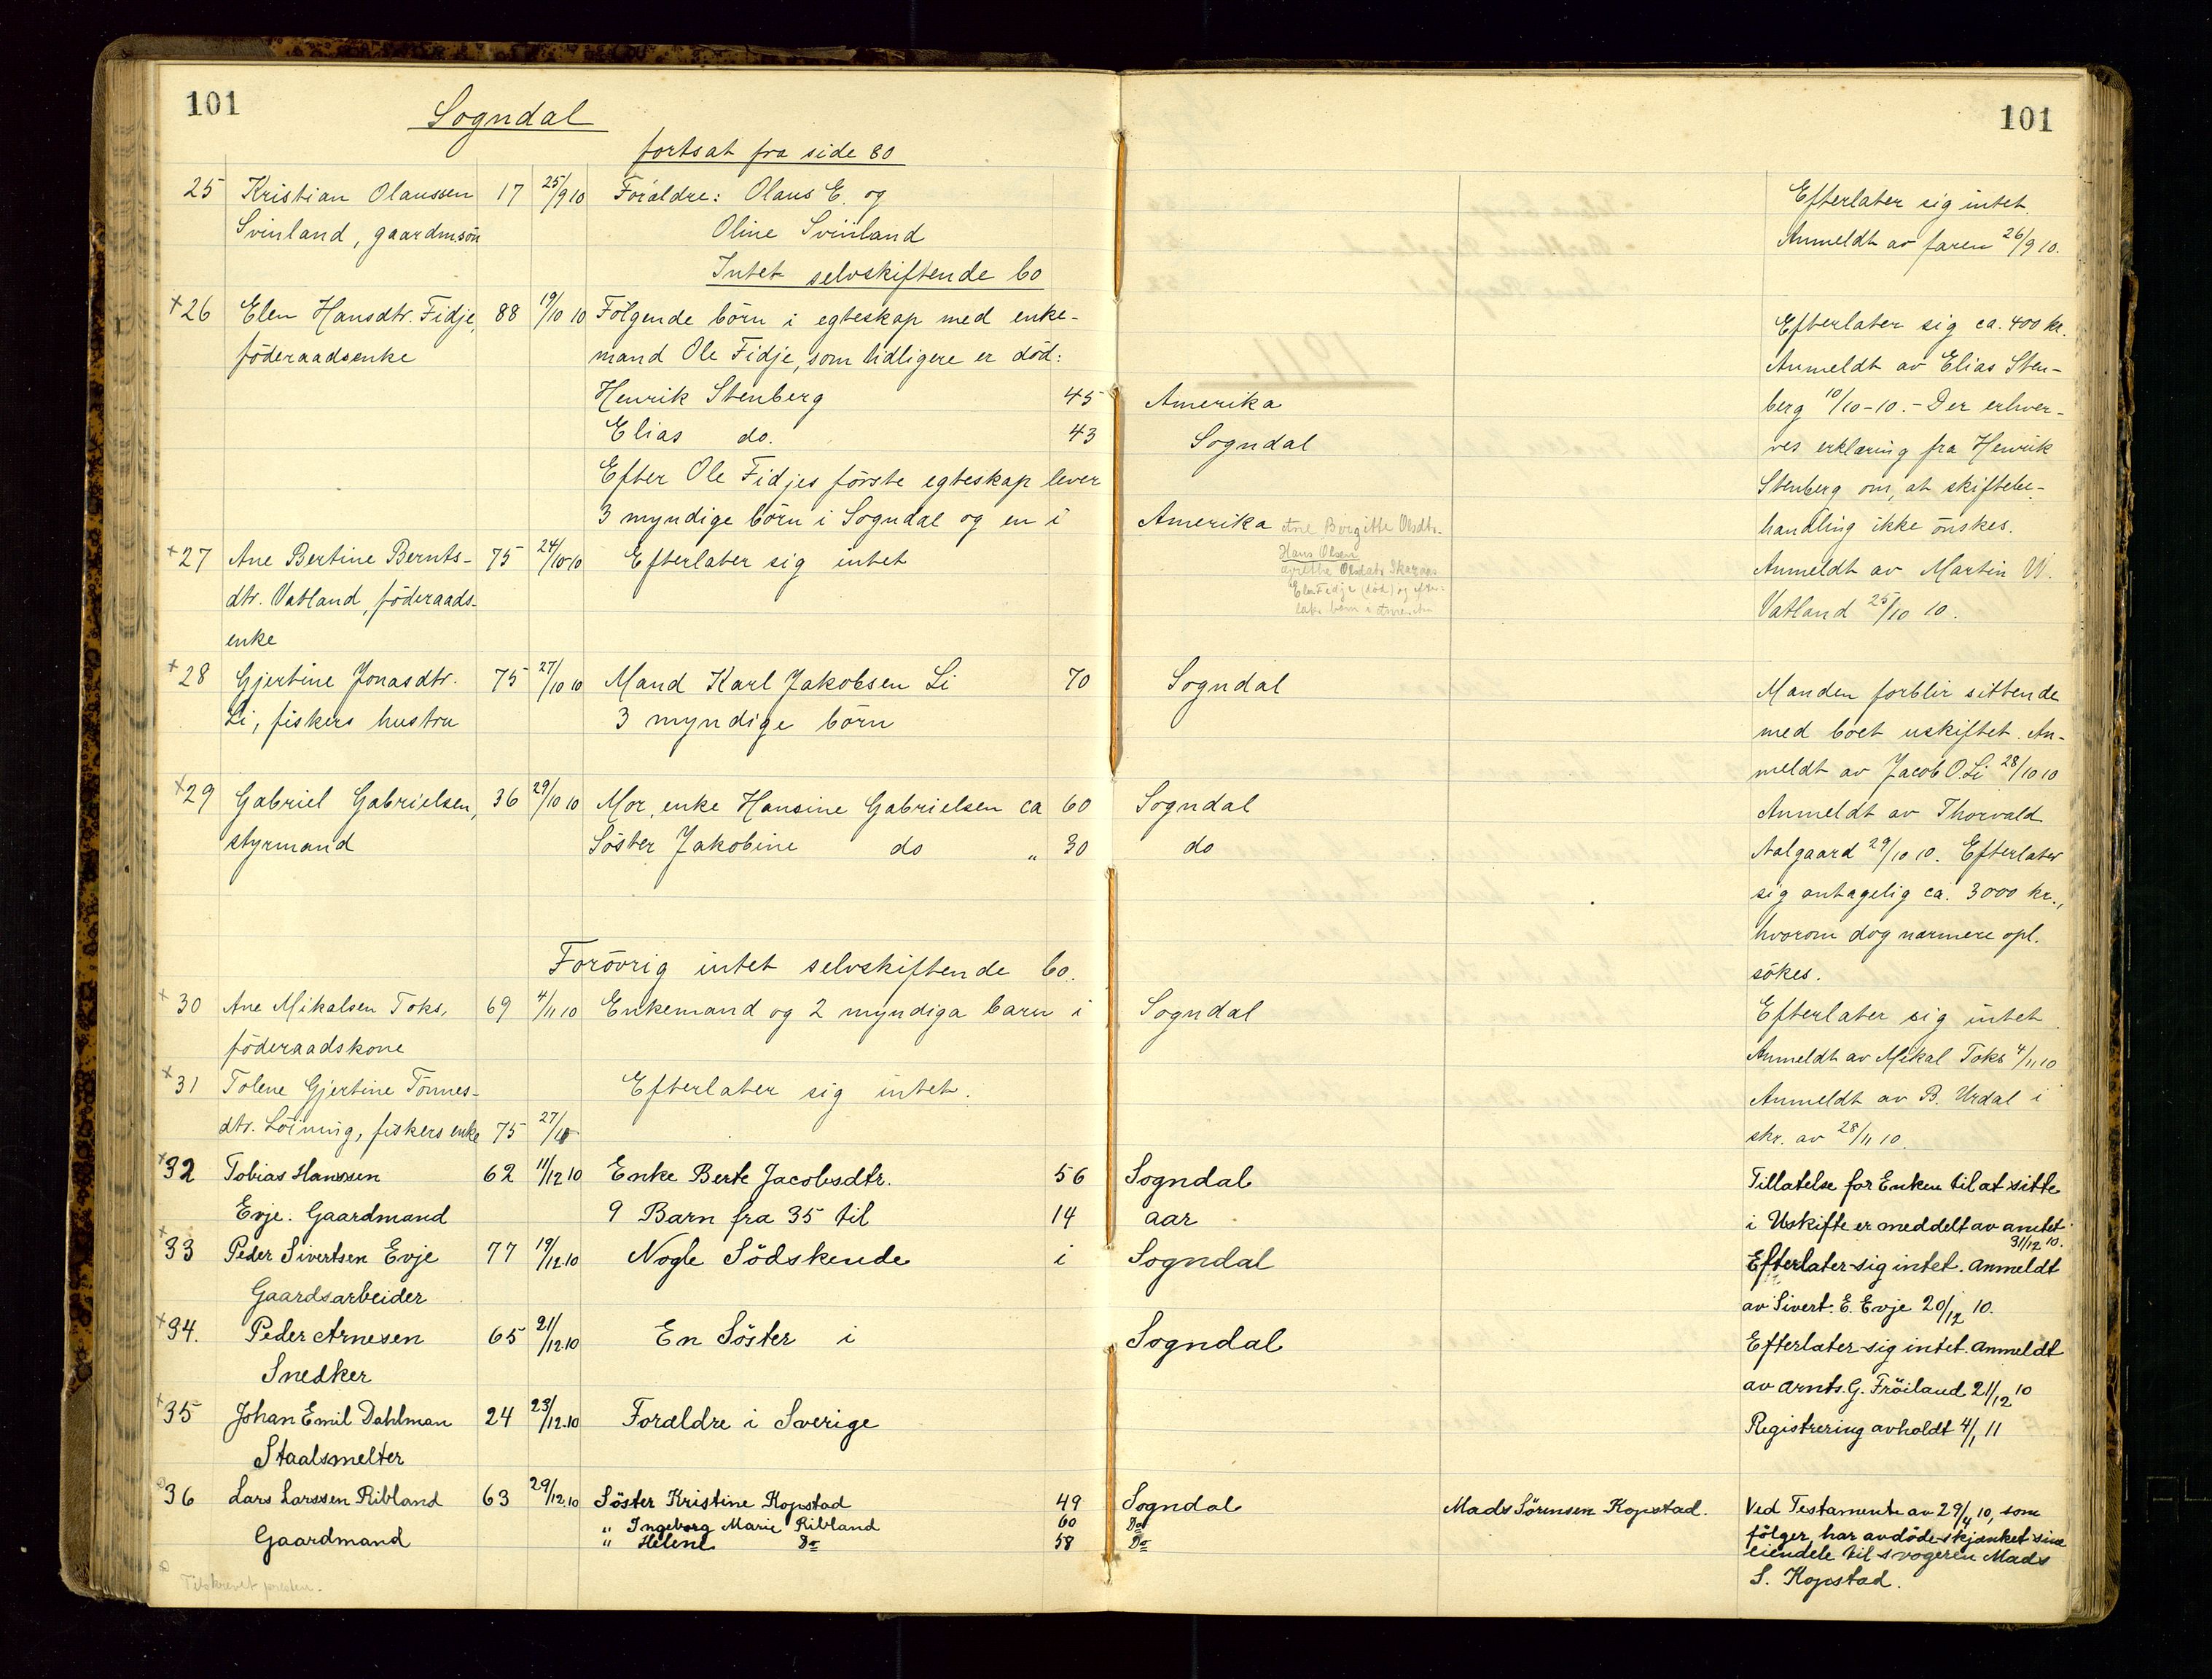 101
Sogndal
fortsat fra side 80
101
25 Kristian Olaussen 17 25/9 10 Forældre: Olaus E. og
Svinland, gaardmsön Oline Svinland
Intet selvskiftende bo
Efterlater sig intet.
Anmeldt av faren 26/9 10.
+26 Elen Hansdtr. Fidje, 88 19/10 10 Fölgende börn i egteskap med enke-
föderaadsenke mand Ole Fidje, som tidligere er död:
Henrik Stenberg 45 Amerika
Elias do. 43 Sogndal
Efter Ole Fidjes förste egteskap lever
3 myndige börn i Sogndal og en i Amerika
Ane Birgitte Olsdtr.
Hans Olsen
Efterlater sig ca. 400 kr.
Anmeldt av Elias Sten-
berg 10/10-10. - Der erhver-
ves erklæring fra Henrik
Stenberg om, at skiftebe-
handling ikke önskes.
+27 Ane Bertine Bernts- 75 24/10 10 Efterlater sig intet
dtr. Vatland, föderaads-
enke
Elen Fidje (död) og
Anmeldt av Martin W.
Vatland 25/10 10.
+28 Gjertine Jonasdtr. 75 27/10 10 Mand Karl Jakobsen Li 70 Sogndal
Li, fiskers hustru 3 myndige börn
Manden forblir sittende
med boet uskiftet. An-
meldt av Jacob O. Li 28/10 10
+29 Gabriel Gabrielsen, 36 29/10 10 Mor, enke Hansine Gabrielsen ca 60 Sogndal
styrmand Söster Jakobine do " 30 do
Anmeldt av Thorvald
Aalgaard 29/10 10. Efterlater
sig antagelig ca. 3000 kr.,
hvorom dog nærmere opl.
sökes.
Forövrig intet selvskiftende bo.
+30 Ane Mikalsen Toks, 69 4/11 10 Enkemand og 2 myndiga barn i Sogndal
föderaadskone
Efterlater sig intet.
Anmeldt av Mikal Toks 4/11 10
+31 Tolene Gjertine Tönnes- Efterlater sig intet.
dtr. Löining, fiskers enke 75 27/10
Anmeldt av B. Urdal i
skr. av 28/11 10.
+32 Tobias Hanssen 62 11/12 10 Enke Berte Jacobsdtr. 56 Sogndal
Evje. Gaardmand 9 Barn fra 35 til 14 aar
Tillatelse for Enken til at sitte
i Uskifte er meddelt av amtet
31/12 10.
+33 Peder Sivertsen Evje 77 19/12.10 Nogle Södskende i Sogndal
Gaardsarbeider
Efterlater sig intet. Anmeldt
av Sivert. E. Evje 20/12 10.
+34. Peder Arnesen 65 21/12.10 En Söster i Sogndal
Snedker
Efterlater sig intet. Anmeldt
av Arnts. G. Fröiland 21/12 10
+35 Johan Emil Dahlman 24 23/12.10 Forældre i Sverige
Staalsmelter
Registrering avholdt 4/1 11
36 Lars Larssen Ribland 63 29/12.10 Söster Kristine Kopstad 49 Sogndal Mads Sörensen Kopstad.
Gaardmand " Ingeborg Marie Ribland 60 Do
" Helene Do 58 Do
Ved Testamente av 29/4 10, som
fölger, har avdöde skjænket sine
eiendele til svogeren Mads
S. Kopstad.
Tilskrevet presten.